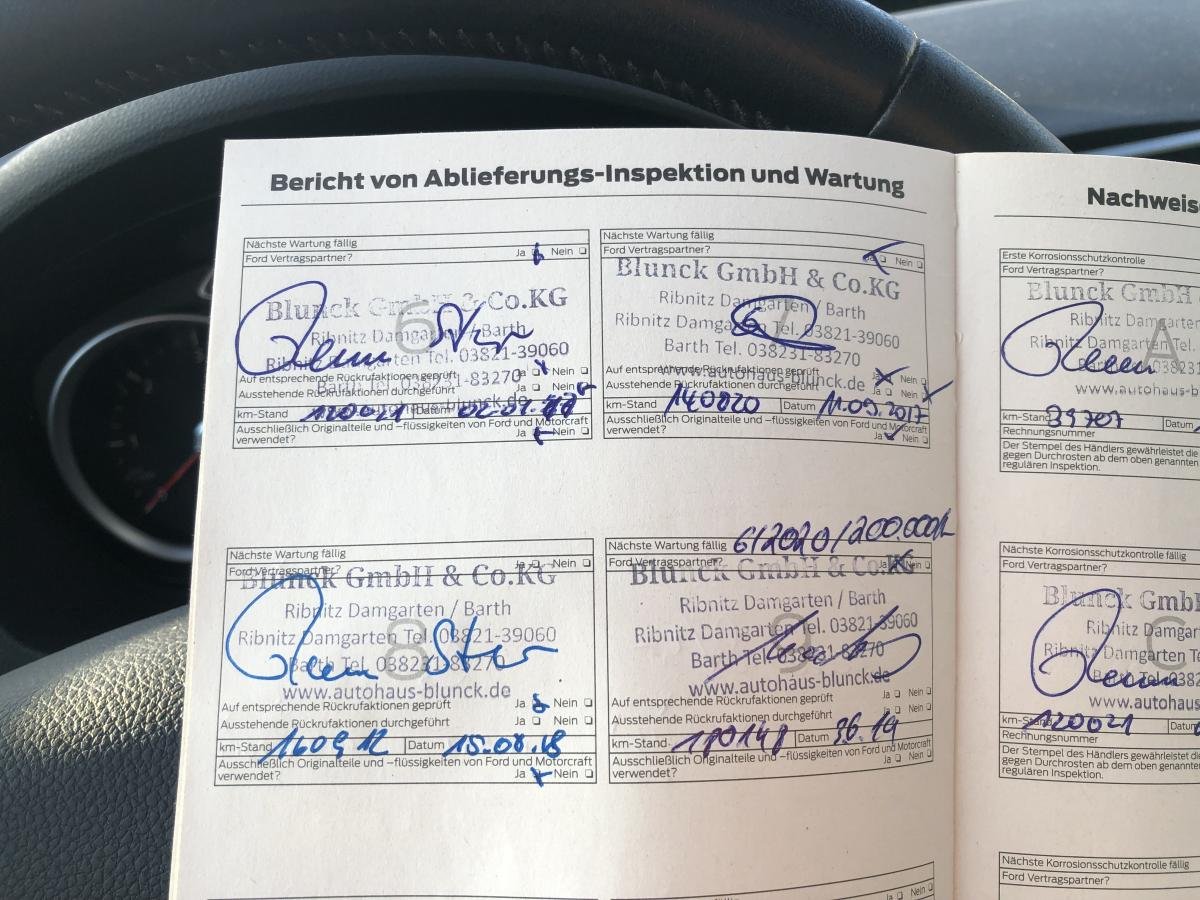 Bericht von Ablieferungs-Inspektion und Wartung
Nächste Wartung fällig
Ford Vertragspartner? Ja Nein
6
Blunck GmbH & Co.KG
Ribnitz Damgarten / Barth
Ribnitz Damgarten Tel. 03821-39060
Barth Tel. 038231-83270
www.autohaus-blunck.de
Auf entsprechende Rückrufaktionen geprüft Ja Nein
Ausstehende Rückrufaktionen durchgeführt Ja Nein
km-Stand 120021 Datum 02.01.
Ausschließlich Originalteile und –flüssigkeiten von Ford und Motorcraft
verwendet? Ja Nein
Nächste Wartung fällig
Ford Vertragspartner? Ja Nein
7
Blunck GmbH & Co.KG
Ribnitz Damgarten / Barth
Ribnitz Damgarten Tel. 03821-39060
Barth Tel. 038231-83270
www.autohaus-blunck.de
Auf entsprechende Rückrufaktionen geprüft Ja Nein
Ausstehende Rückrufaktionen durchgeführt Nein
km-Stand 140820 Datum 11.09.2017
Ausschließlich Originalteile und –flüssigkeiten von Ford und Motorcraft
verwendet? Ja Nein
Nächste Wartung fällig
Ford Vertragspartner? Ja Nein
8
Blunck GmbH & Co.KG
Ribnitz Damgarten / Barth
Ribnitz Damgarten Tel. 03821-39060
Barth Tel. 038231-83270
www.autohaus-blunck.de
Auf entsprechende Rückrufaktionen geprüft Ja Nein
Ausstehende Rückrufaktionen durchgeführt Ja Nein
km-Stand 160912 Datum 15.08.18
Ausschließlich Originalteile und –flüssigkeiten von Ford und Motorcraft
verwendet? Ja Nein
Nächste Wartung fällig 6/2020/200.000
Ford Vertragspartner? Ja Nein
9
Blunck GmbH & Co.KG
Ribnitz Damgarten / Barth
Ribnitz Damgarten Tel. 03821-39060
Barth Tel. 038231-83270
www.autohaus-blunck.de
Auf entsprechende Rückrufaktionen geprüft Ja Nein
Ausstehende Rückrufaktionen durchgeführt Ja Nein
km-Stand 180148 Datum
Ausschließlich Originalteile und –flüssigkeiten von Ford und Motorcraft
verwendet? Ja Nein
Ja Nein
Nachweis
Erste Korrosionsschutzkontrolle
Ford Vertragspartner?
A
Blunck GmbH
Ribnitz Damgarten
www.autohaus-b
km-Stand 39707 Datum
Rechnungsnummer
Der Stempel des Händlers gewährleistet die
gegen Durchrosten ab dem oben genannten
regulären Inspektion.
Nächste Korrosionsschutzkontrolle fällig
Ford Vertragspartner?
C
Blunck GmbH
Ribnitz Damgar
Ribnitz Damgarten Te
Barth Tel. 0382
www.autohaus
km-Stand 120021 Datum
Rechnungsnummer
Der Stempel des Händlers gewährleistet die
gegen Durchrosten ab dem oben genannten
regulären Inspektion.
Nächste Korrosionsschutzkontrolle fällig
Ford Vertragspartner?